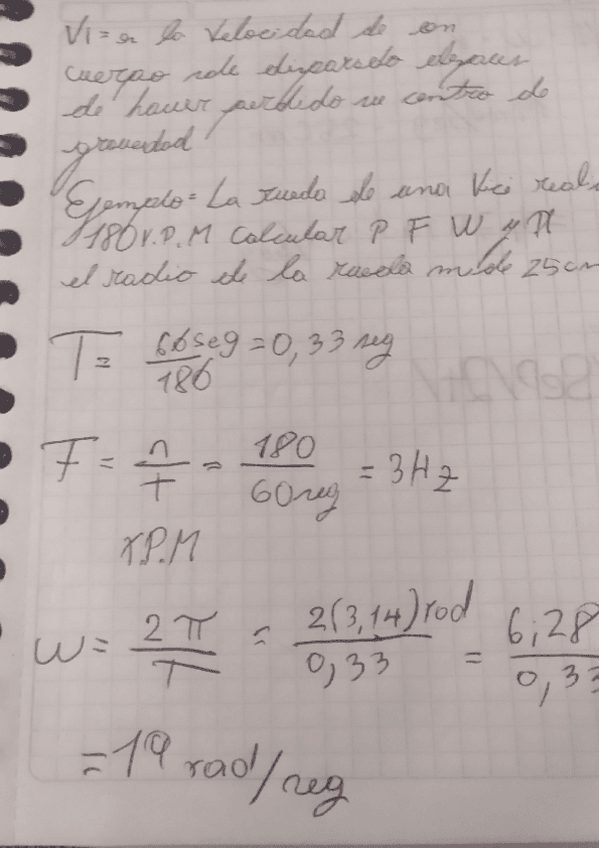 Vi = es la velocidad de con
cuerpo sale disparado
de haver perdido su centro de
gravedad
Ejemplo = La rueda de una Vici reali
180 r.P.M Calcular P F W y
el radio de la rueda mide 25cm
T = 60seg/180 = 0,33 seg
F = n/t = 180/60seg = 3Hz
r.P.M
W = 2π/T = 2(3,14)rod/0,33 = 6,28/0,33
= 19 rad/seg